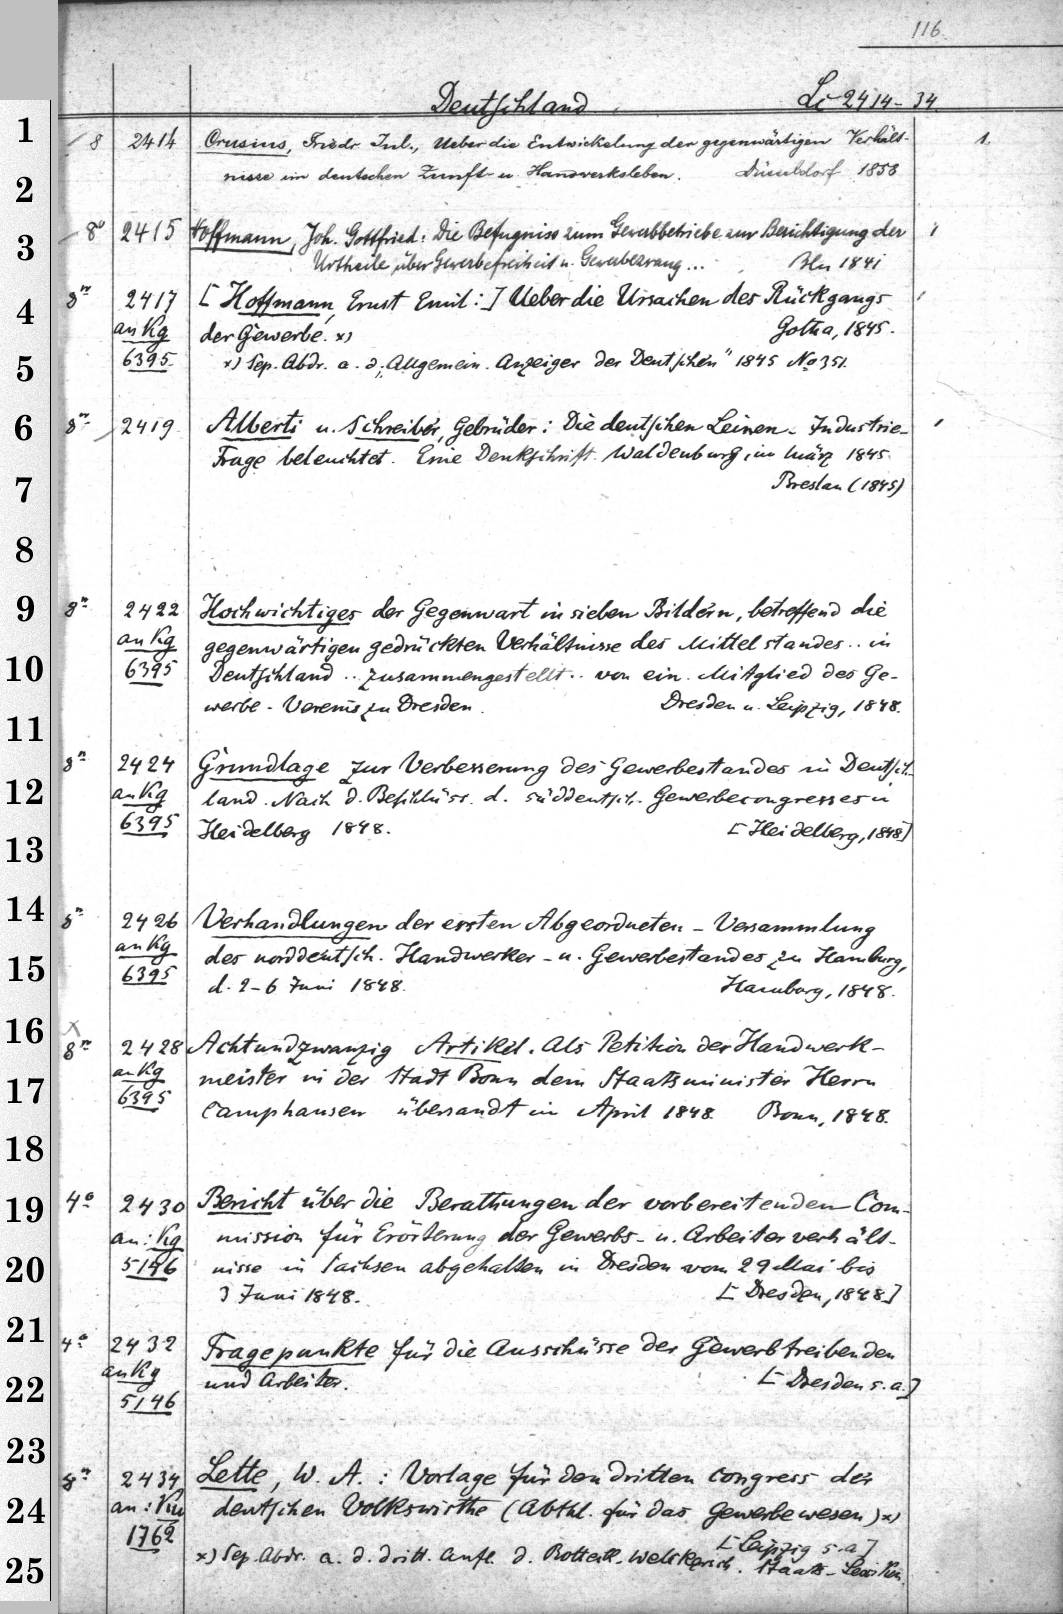 116.
Deutschland Li 2414-34
1
8 2414 Crusius, Friedr. Jul., Ueber die Entwickelung der gegenwärtigen Verhält- 1.
2
nisse im deutschen Zunft- u. Handwerksleben. Düsseldorf 1858
3
8° 2415 Hoffmann, Joh. Gottfried: Die Befugniss zum Gewerbbetriebe zur Berichtigung der
Urtheile über Gewerbefreiheit u. Gewerbezwang... Bln 1841
4
8° 2417 [Hoffmann, Ernst Emil:] Ueber die Ursachen des Rückgangs
an Kg der Gewerbe. x) Gotha, 1845.
5
6395 x) Sep. Abdr. a. d. "Allgemein. Anzeiger der Deutschen" 1845 No 351.
6
8° 2419 Alberti u. Schreiber, Gebrüder: Die deutschen Leinen-Industrie-
Frage beleuchtet. Eine Denkschrift. Waldenburg, im März 1845.
7
Breslau (1845)
8
9
8° 2422 Hochwichtiges der Gegenwart in sieben Bildern, betreffend die
an Kg gegenwärtigen gedrückten Verhältnisse des Mittelstandes .. in
10
6395 Deutschland .. zusammengestellt .. von ein. Mitglied des Ge-
werbe-Vereins zu Dresden. Dresden u. Leipzig, 1848.
11
12
8° 2424 Grundlage zur Verbesserung des Gewerbestandes in Deutsch-
an Kg land. Nach d. Beschlüss. d. süddeutsch. Gewerbecongresses in
6395 Heidelberg 1848. [Heidelberg, 1848]
13
14
8° 2426 Verhandlungen der ersten Abgeordneten-Versammlung
an Kg des norddeutsch. Handwerker- u. Gewerbestandes zu Hamburg,
15
6395 d. 2-6 Juni 1848. Hamburg, 1848.
16
x
8° 2428 Achtundzwanzig Artikel. Als Petition der Handwerk-
an Kg meister in der Stadt Bonn dem Staatsminister Herrn
17
6395 Camphausen übersandt im April 1848. Bonn, 1848.
18
19
4° 2430 Bericht über die Berathungen der vorbereitenden Com-
an: Kg mission für Erörterung der Gewerbs- u. Arbeiterverhält-
20
5146 nisse in Sachsen abgehalten in Dresden vom 29 Mai bis
3 Juni 1848. [Dresden, 1848]
21
4° 2432 Fragepunkte für die Ausschüsse der Gewerbtreibenden
an Kg und Arbeiter. [Dresden s.a.]
22
5146
23
8° 2434 Lette, W. A.: Vorlage für den dritten Congress der
24
an: deutschen Volkswirthe (Abthl. für das Gewerbewesen) x)
1762 [Leipzig s.a]
25
x) Sep. Abdr. a. d. dritt. Aufl. d. Rotteck-Welckersch. Staats-Lexikon.